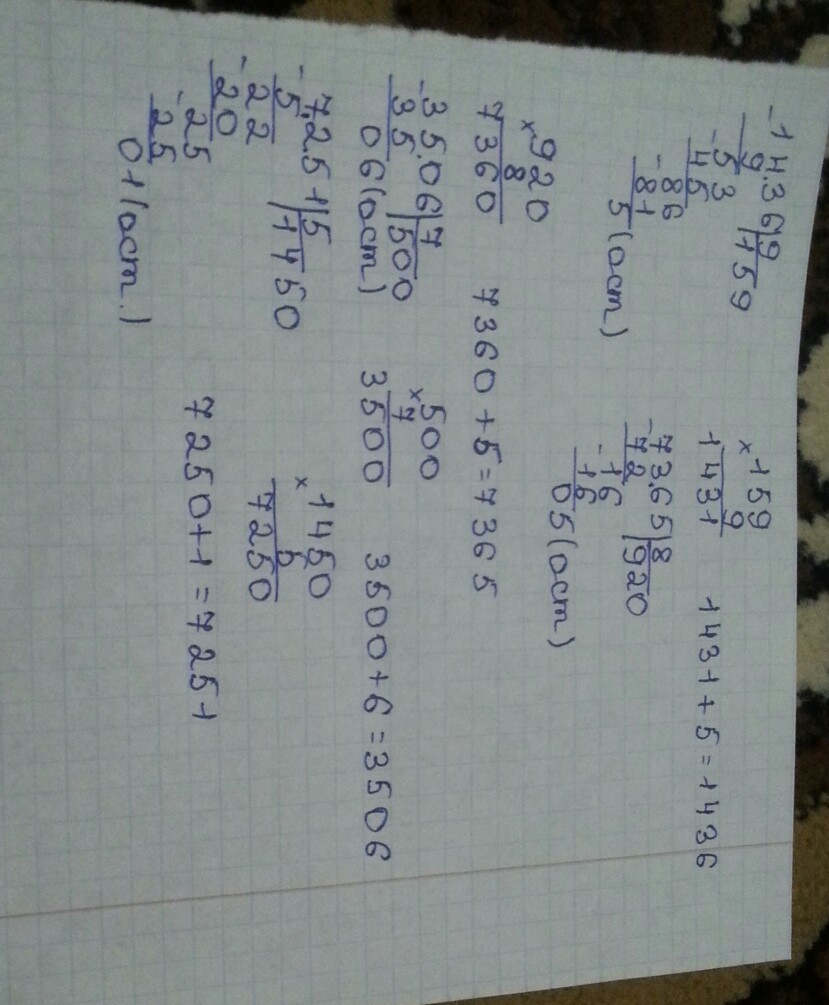 -14.36|9 ×159
9 |159 9
-53 1431 1431+5=1436
45
-86 -73.65|8
-81 72 |920
5(ост) -16
16
05(ост)
×920
8
7360 7360+5=7365
-35.06|7 ×500
35 |500 7
06(ост) 3500 3500+6=3506
-7.251|5 ×1450
5 |1450 5
-22 7250
20
-25 7250+1=7251
25
01(ост.)